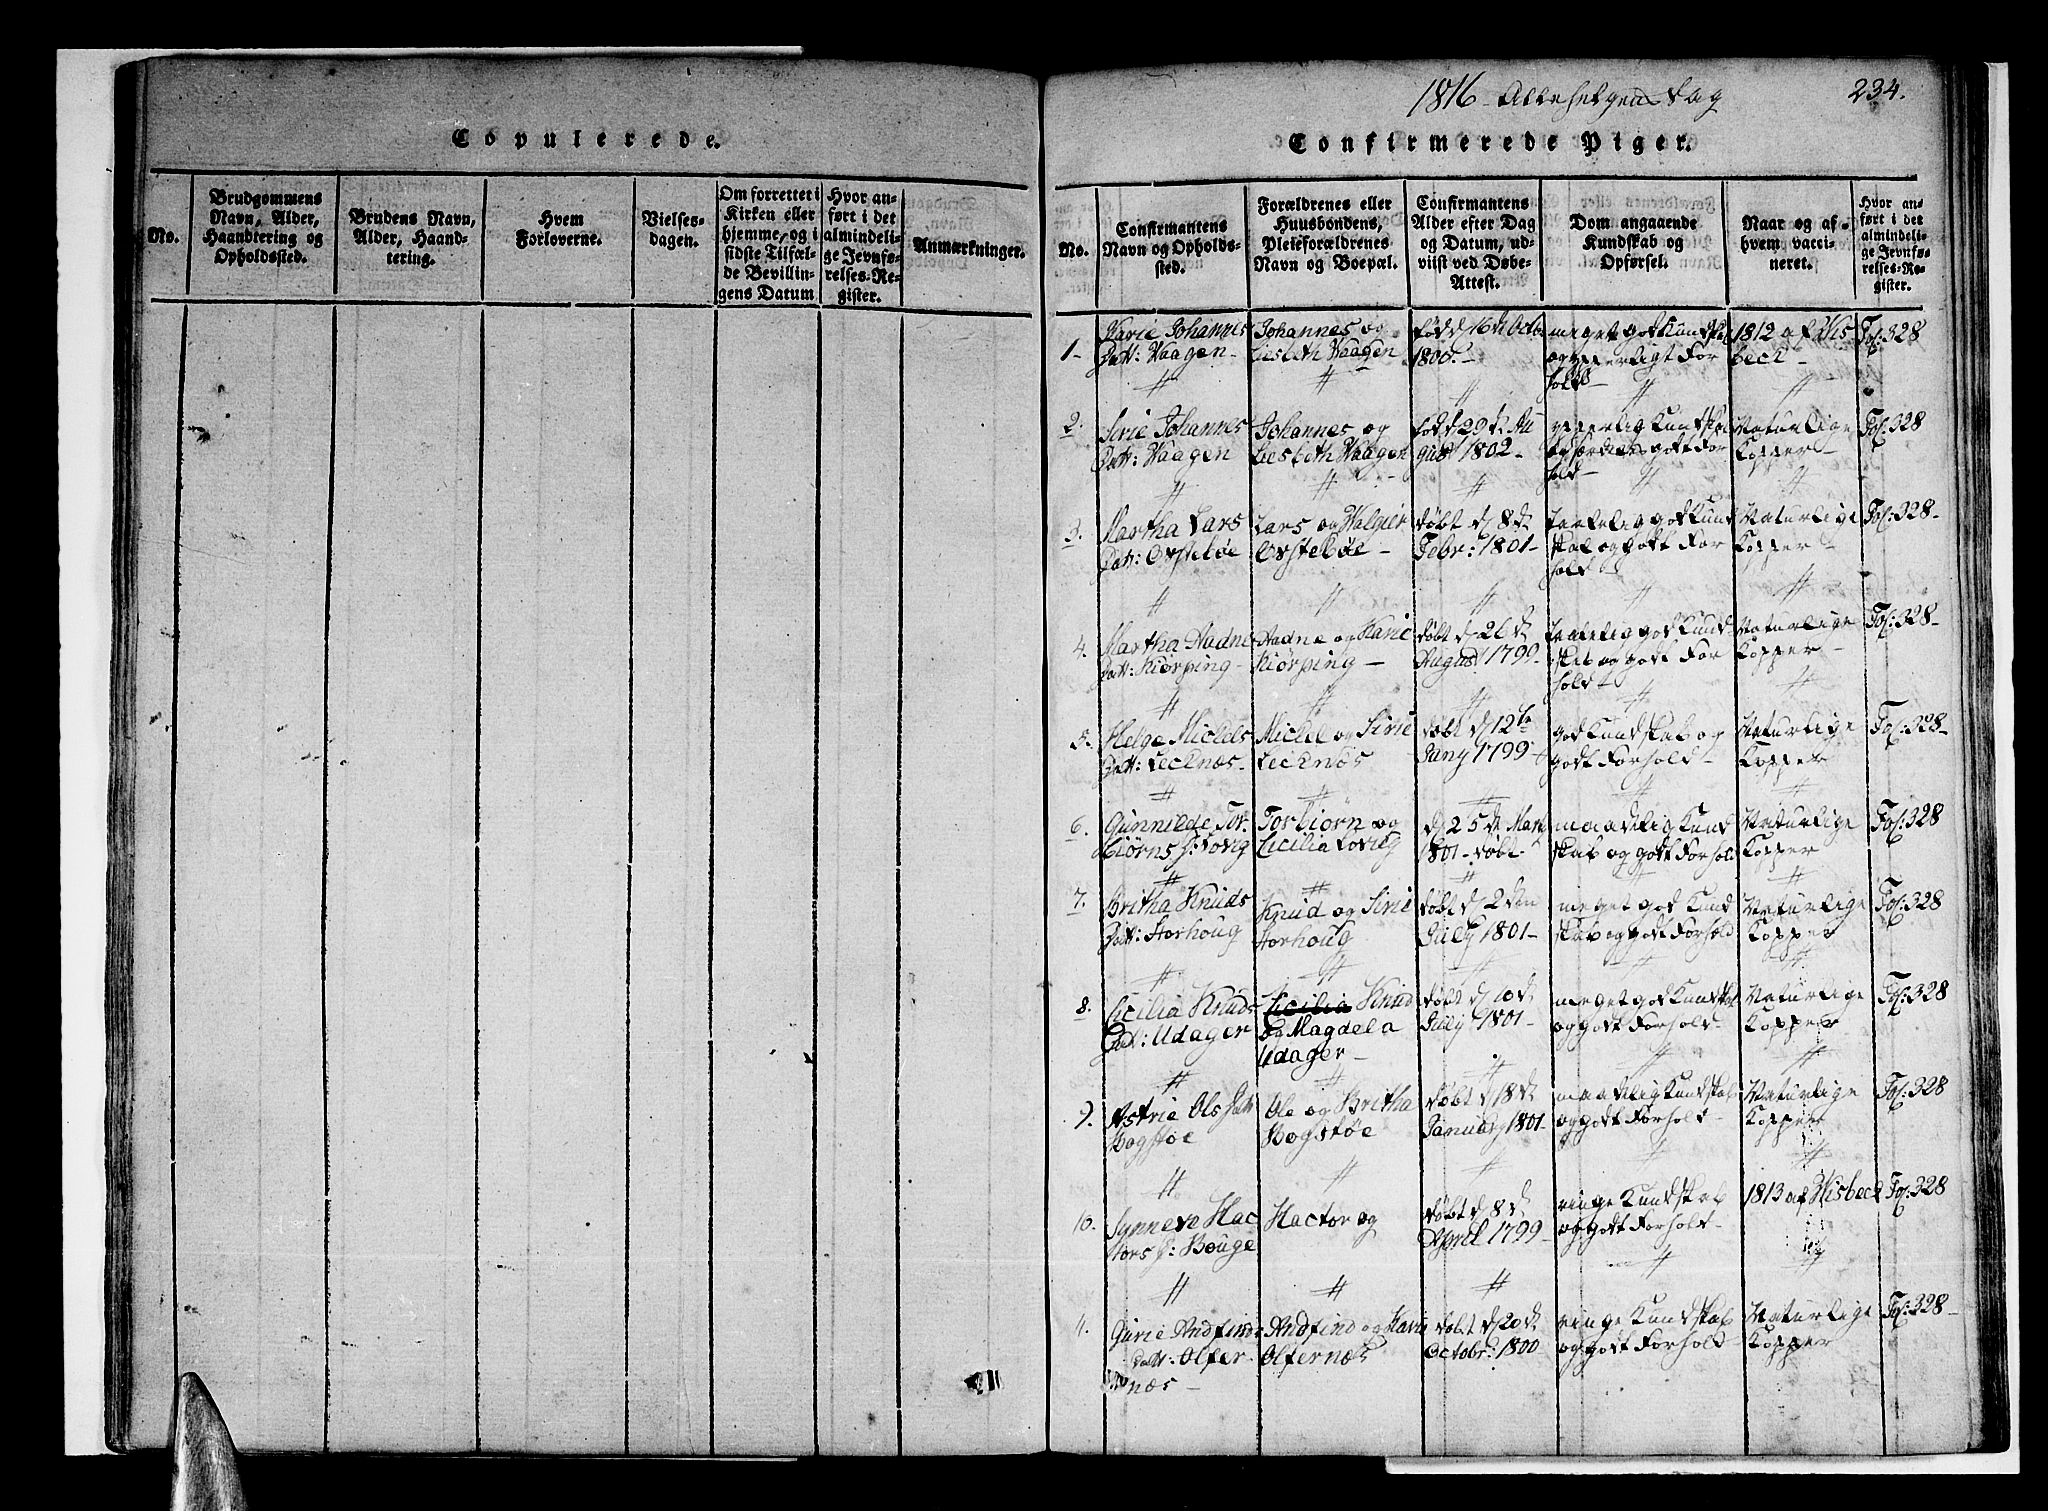 Copulerede.
No.
Brudgommens
Navn, Alder,
Haandtering og
Opholdssted.
Brudens Navn,
Alder, Haand-
tering.
Hvem
Forloverne.
Vielses-
dagen.
Om forrettet i
Kirken eller
hjemme, og i
sidste Tilfæl-
de Bevillin-
gens Datum
Hvor an-
ført i det
almindeli-
ge Jevnfø-
relses-Re-
gister.
Anmærkninger.
1816 - Allehelgens dag
234.
Confirmerede Piger.
No.
Confirmantens
Navn og Opholds-
sted.
Forældrenes eller
Huusbondens,
Pleieforældrenes
Navn og Boepæl.
Confirmantens
Alder efter Dag
og Datum, ud-
viist ved Døbe-
Attest.
Dom angaaende
Kundskab og
Opførsel.
Naar og af-
hvem vacci-
neret.
Hvor an-
ført i det
almindeli-
ge Jevnfø-
relses-Re-
gister.
1-
Karie Johannes
Datt: Waagen-
Johannes og
Liesbeth Waagen
født 16de Octo
1800-
meget god Kundska
og Forhold-
1812 af Wis
beck-
Fol: 328
2.
Sirie Johannes
Datt: Waagen
Johannes og
Liesbeth Waagen
født 29de Au
gust 1802-
og godt For
hold-
Naturlige
Kopper-
Fol: 328
3.
Martha Lars
Datt: Ovsteløe
Lars og Walgier
Ovstebøe-
døbt d 8de
Febr: 1801-
god Kund
skab og godt For
hold
Naturlige
Kopper-
Fol: 328-
4.
Martha Aadne
Datt: Kiørping-
Aadne og Karie
Kiørping-
døbt d 26de
August 1799-
god Kund
skab og godt For
hold-
Naturlige
Kopper-
Fol: 328-
5.
Helge Michels
Datt: Lecknæs-
Michel og Sirie
Lecknøs
døbt d 12te
Jany 1799-
god Kundskab og
godt Forhold-
Naturlige
Kopper
Fol: 328-
6.
Gunnilde Tor
biørns D: Lovig
Torbiørn og
Cicilia Lovig
d 25de Mart
1801- døbt-
maadelig Kund
skab og godt Forhold
Naturlige
Kopper
Fol: 328
7.
Britha Knuds
Datt: Storhoug
Knud og Sirie
Storhoug
døbt d 2den
July 1801-
meget god Kund
skab og godt Forhold
Naturlige
Kopper
Fol: 328
8.
Cicilia Knuds
Datt: Udager
Cicilia Knud
og Magdela
Udager-
døbt d 10de
July 1801-
meget god Kundskab
og godt Forhold-
Naturlige
Kopper
Fol: 328
9.
Astrie Ols Datt
Bogstøe
Ole og Britha
Bogstøe
døbt d 18de
January 1801-
maadelig Kundskab
og godt Forhold-
Naturlige
Kopper
Fol: 328
10.
Synneve Hac
tors D: Bouge
Hactor og
døbt d 8de
April 1799-
ringe Kundskab
og godt Forhold-
1813 af Wisbeck
Fol: 328
11.
Gurie Andfinds
Datt: Olfer
næs-
Andfind og Karie
Olfernæs
døbt d 20de
Octobr: 1800
ringe Kundskab
og godt Forhold
Naturlige
Kopper
Fol: 328-